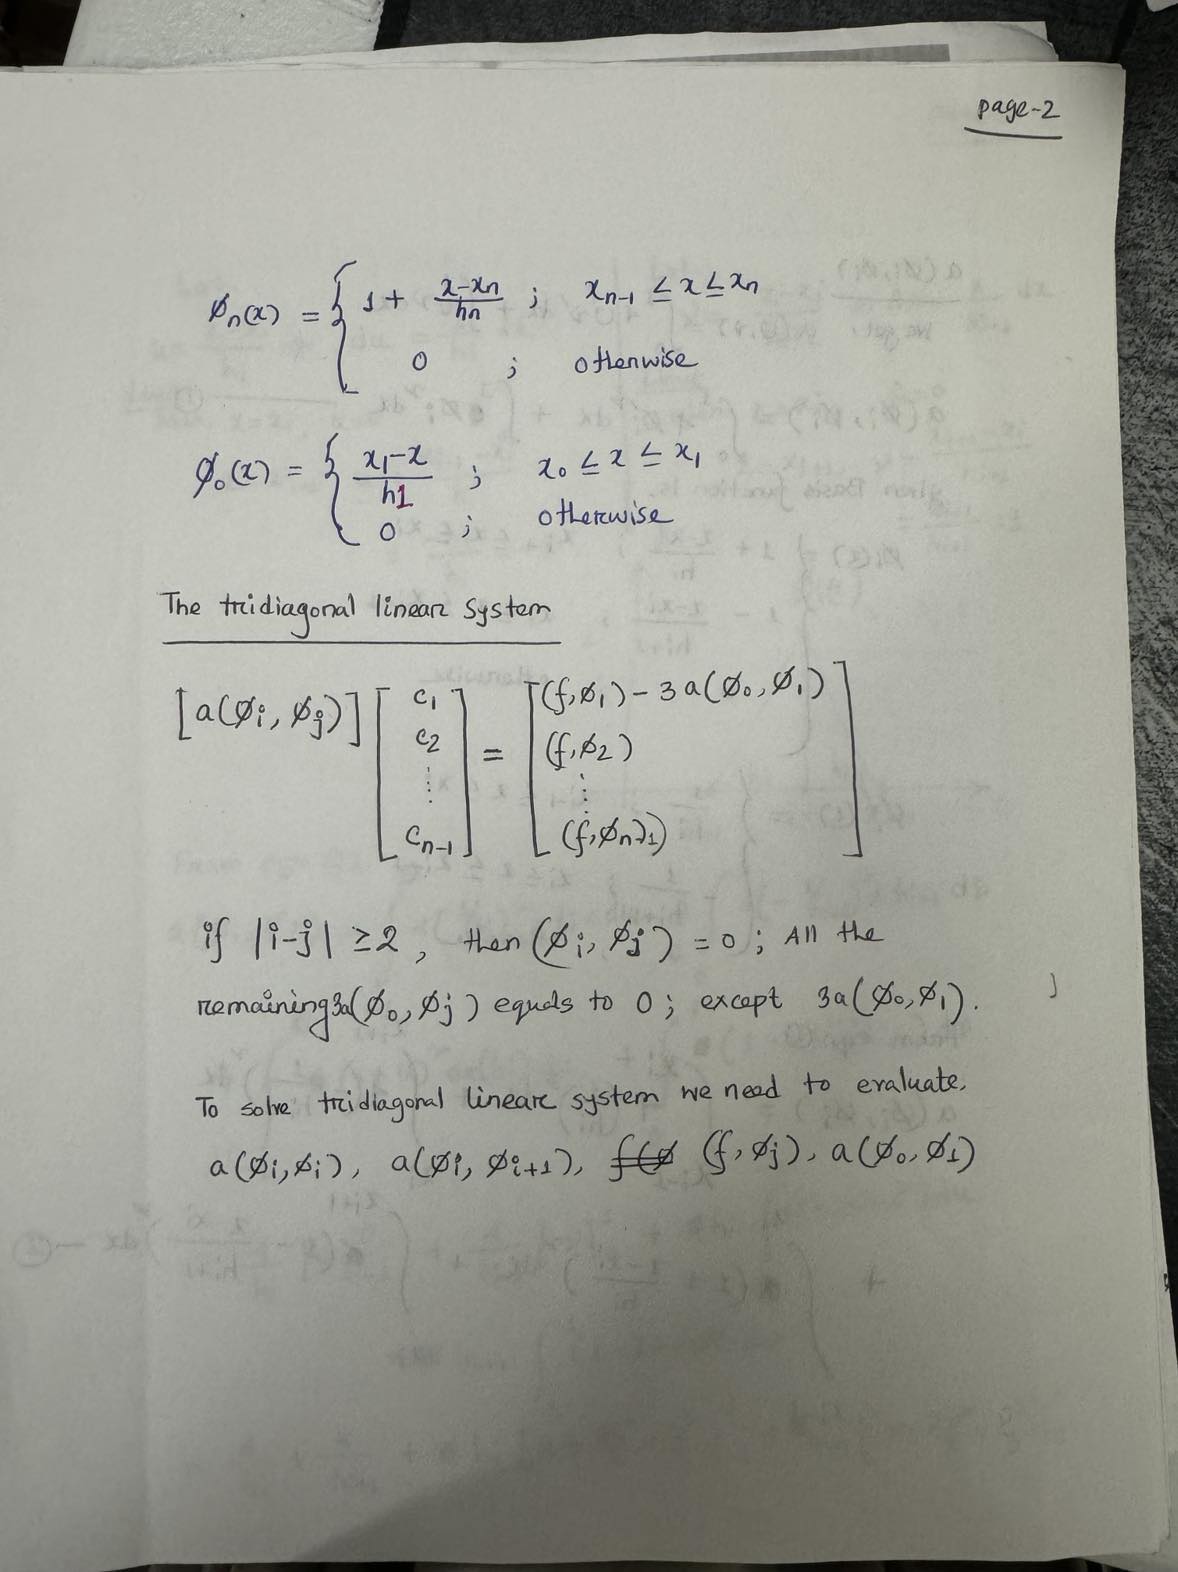 page-2
φn(x) = { 1 + (x-xn)/hn ; xn-1 ≤ x ≤ xn
0 ; otherwise
φ0(x) = { (x1-x)/h1 ; x0 ≤ x ≤ x1
0 ; otherwise
The tridiagonal linear System
[a(φi, φj)] [c1 c2 ⋮ cn-1] = [(f,φ1) - 3a(φ0,φ1) (f,φ2) ⋮ (f,φn-1)]
if |i-j| ≥ 2, then (φi, φj) = 0 ; All the
remaining 3a(φ0, φj) equals to 0 ; except 3a(φ0,φ1).
To solve tridiagonal linear system we need to evaluate.
a(φi,φi), a(φi, φi+1), (f, φj), a(φ0, φ1)